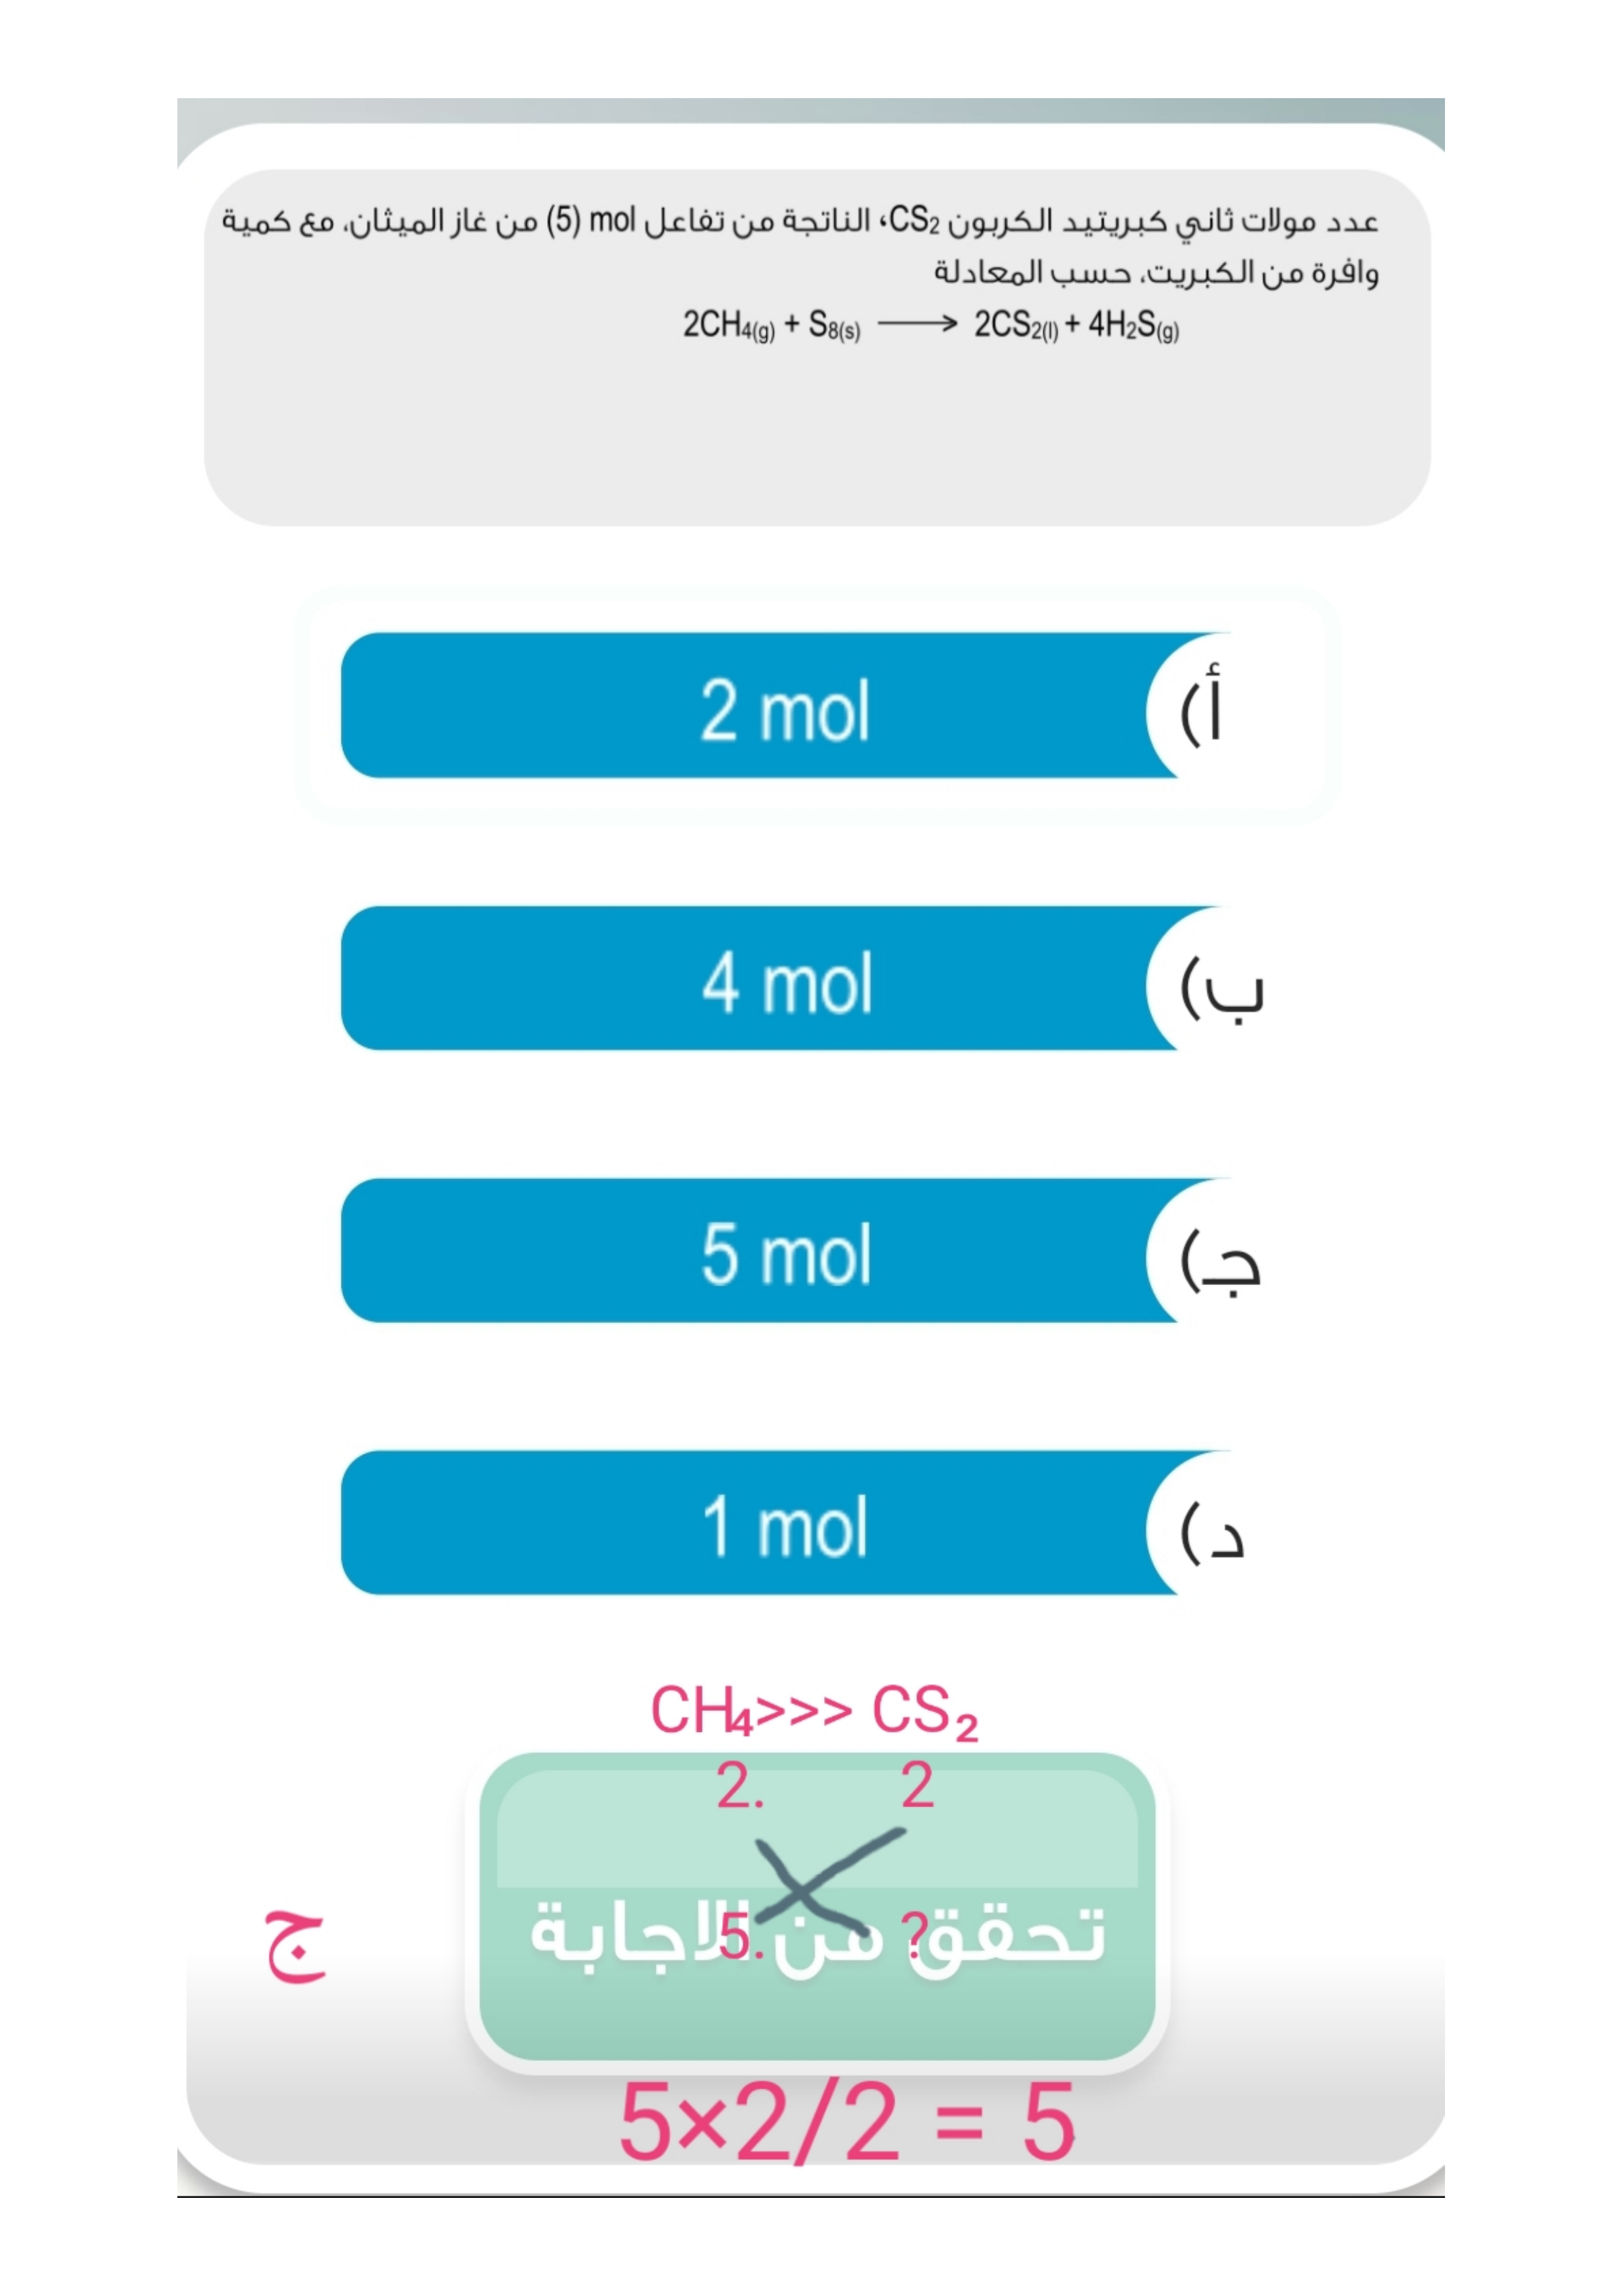 عدد مولات ثاني كبريتيد الكربون CS₂، الناتجة من تفاعل mol (5) من غاز الميثان، مع كمية
وافرة من الكبريت، حسب المعادلة
2CH₄(g) + S₈(s) ⟶ 2CS₂(l) + 4H₂S(g)
أ) 2 mol
ب) 4 mol
ج) 5 mol
د) 1 mol
CH₄>>> CS₂
2. 2
5. ?
تحقق من الاجابة
ج
5×2/2 = 5